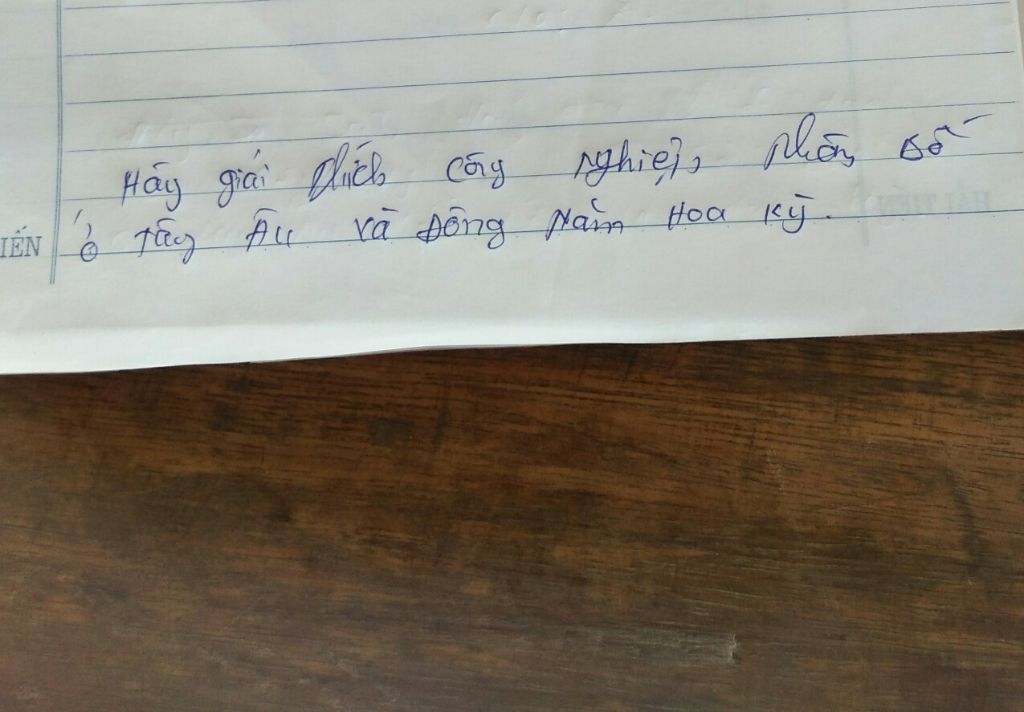 Hãy giải thích công nghiệp, phân số
ở tây Âu và Đông Nam Hoa Kỳ.
IẾN